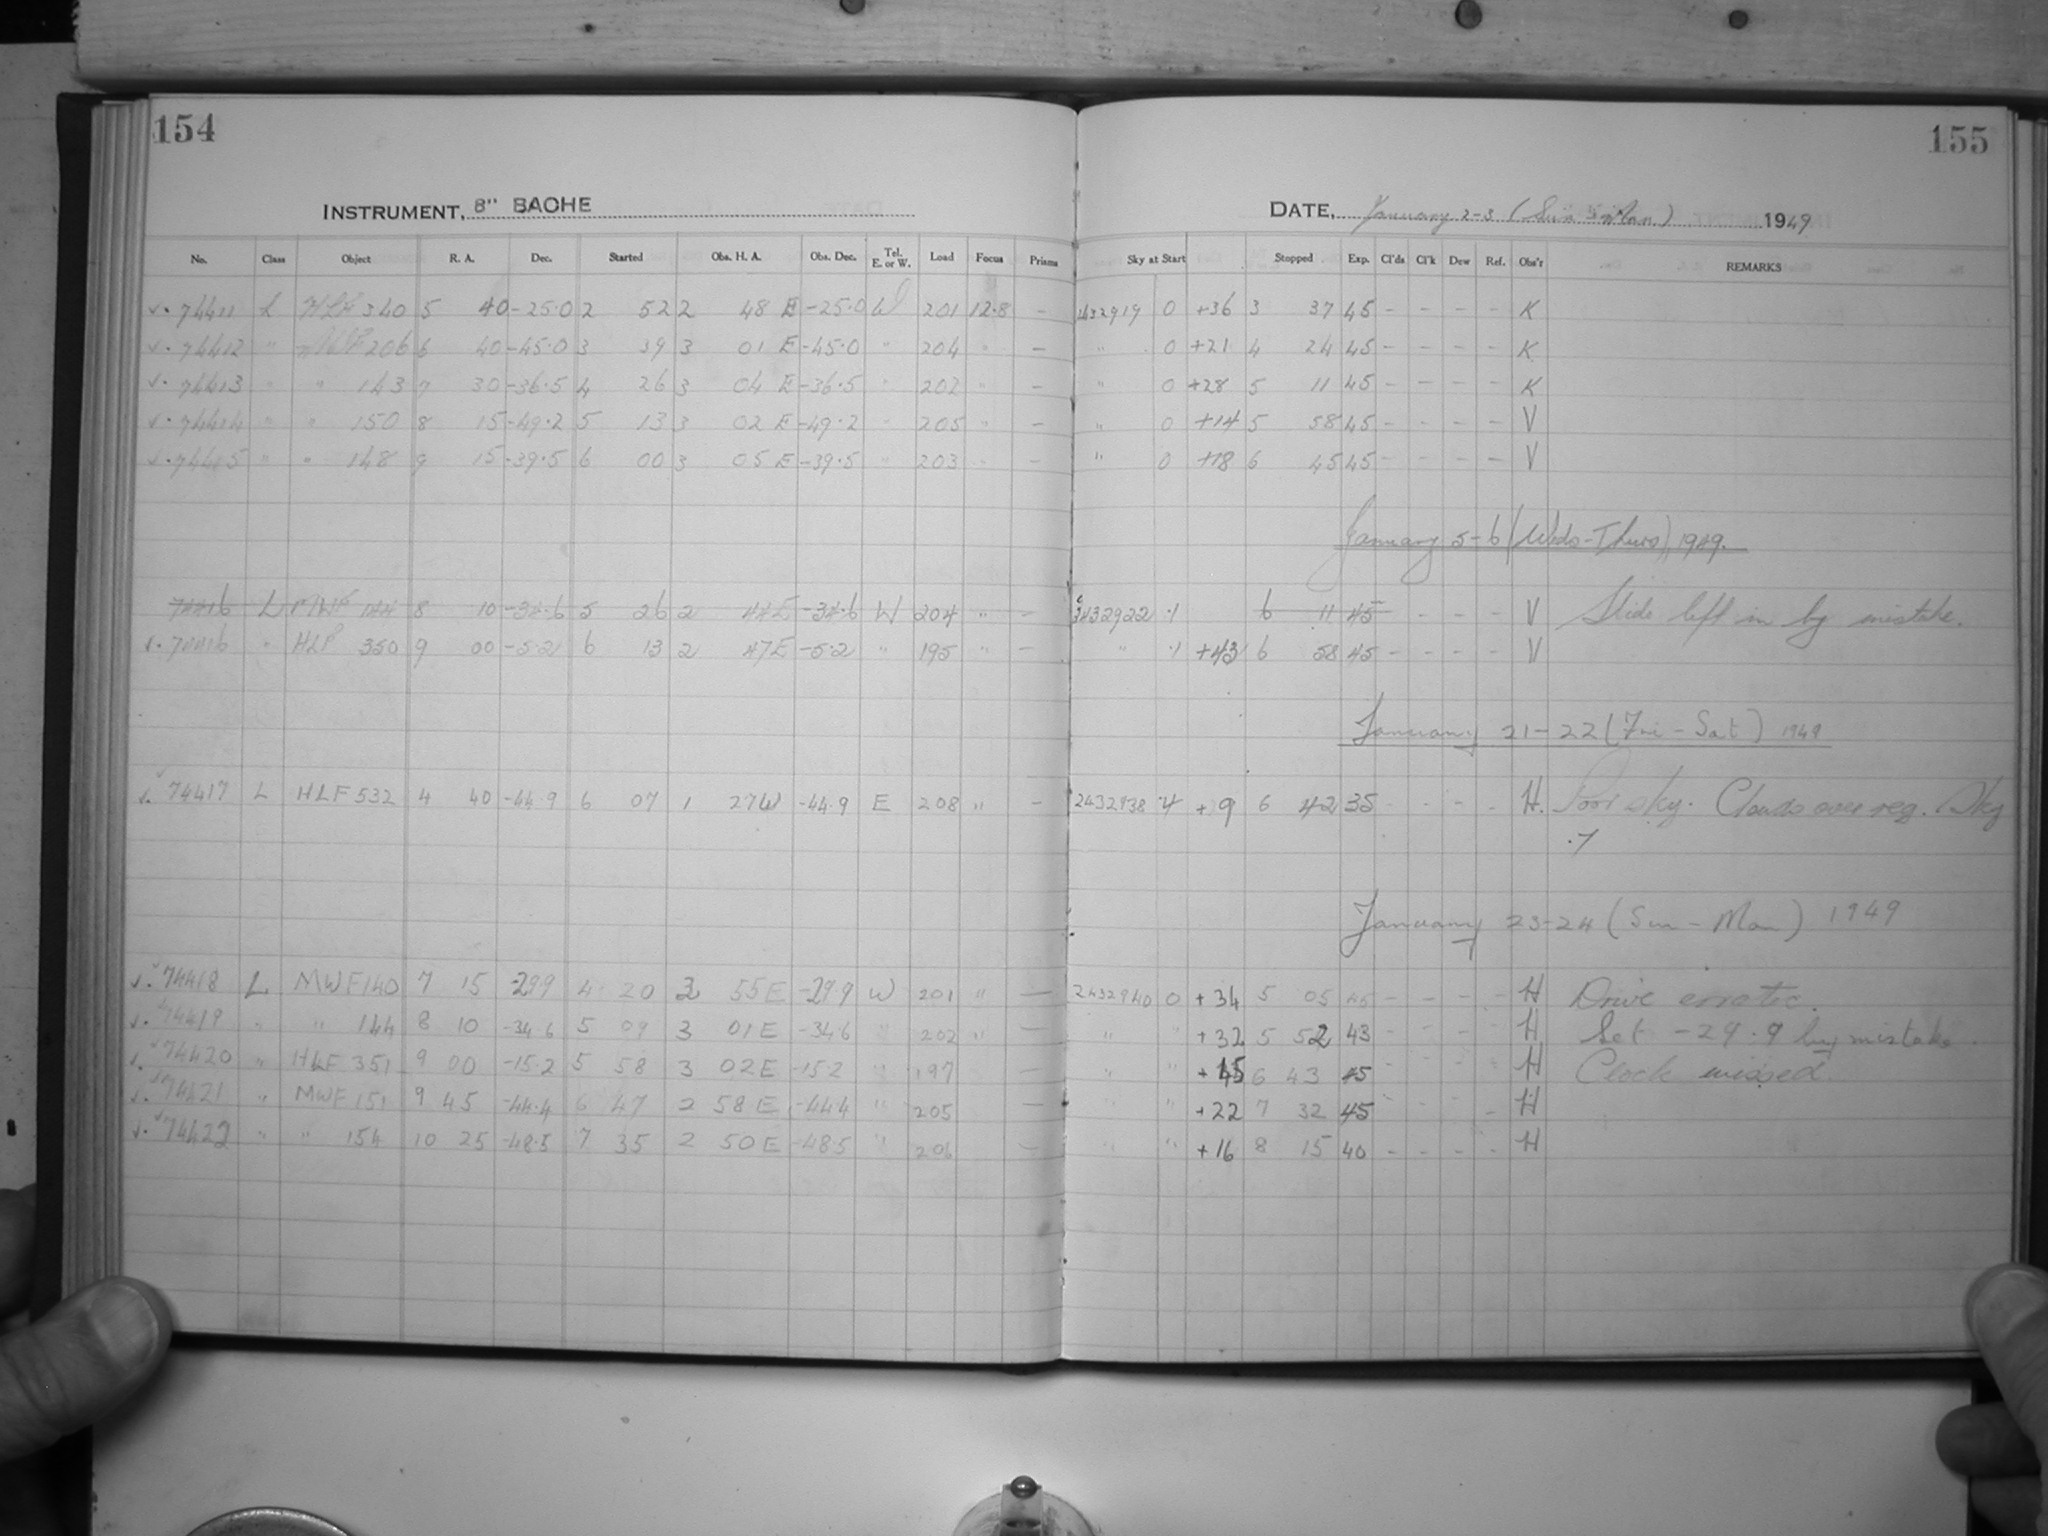 154
155
INSTRUMENT, 8" BACHE
DATE, January 2-3 (Sun-Mon) 1949
No. Class Object R. A. Dec. Started Obs. H. A. Obs. Dec. Tel. E. or W. Load Focus Prisms Sky at Start Stopped Exp. Cl'ds Cl'k Dew Ref. Obs'r REMARKS
74411 L HLF 340 5 40 -25.0 2 52 2 48 E -25.0 W 201 12.8 - 2432919 0 +36 3 37 45 - - - - K
74412 " 206 6 40 -45.0 3 39 3 01 E -45.0 " 204 " - " 0 +21 4 24 45 - - - - K
74413 " " 143 7 30 -36.5 4 26 3 04 E -36.5 " 202 " - " 0 +28 5 11 45 - - - - K
74414 " " 150 8 15 -49.2 5 13 3 02 E -49.2 " 205 " - " 0 +14 5 58 45 - - - - V
74415 " " 148 9 15 -39.5 6 00 3 05 E -39.5 " 203 " - " 0 +18 6 45 45 - - - - V
January 5-6 (Weds-Thurs) 1949.
74416 L MWF 144 8 10 -34.6 5 26 2 44 E -34.6 W 204 " - 2432922 .1 6 11 45 - - - - V Slide left in by mistake.
74416 " HLF 350 9 00 -5.2 6 13 2 47 E -5.2 " 195 " - " .1 +43 6 58 45 - - - - V
January 21-22 (Fri-Sat) 1949
74417 L HLF 532 4 40 -44.9 6 07 1 27 W -44.9 E 208 " - 2432938 .4 +9 6 42 35 - - - - H. Poor sky. Clouds over reg. Sky
.7
January 23-24 (Sun-Mon) 1949
74418 L MWF 140 7 15 -29.9 4 20 2 55 E -29.9 W 201 " - 2432940 0 +34 5 05 45 - - - - H Drive erratic.
74419 " " 144 8 10 -34.6 5 09 3 01 E -34.6 " 202 " - " " +32 5 52 43 - - - - H Set -29.9 by mistake.
74420 " HLF 351 9 00 -15.2 5 58 3 02 E -15.2 " 197 - " " 6 43 45 - - - - H Clock missed.
74421 " MWF 151 9 45 -44.4 6 47 2 58 E -44.4 " 205 - " " +22 7 32 45 - - - - H
74422 " " 154 10 25 -48.5 7 35 2 50 E -48.5 " 206 - " " +16 8 15 40 - - - - H